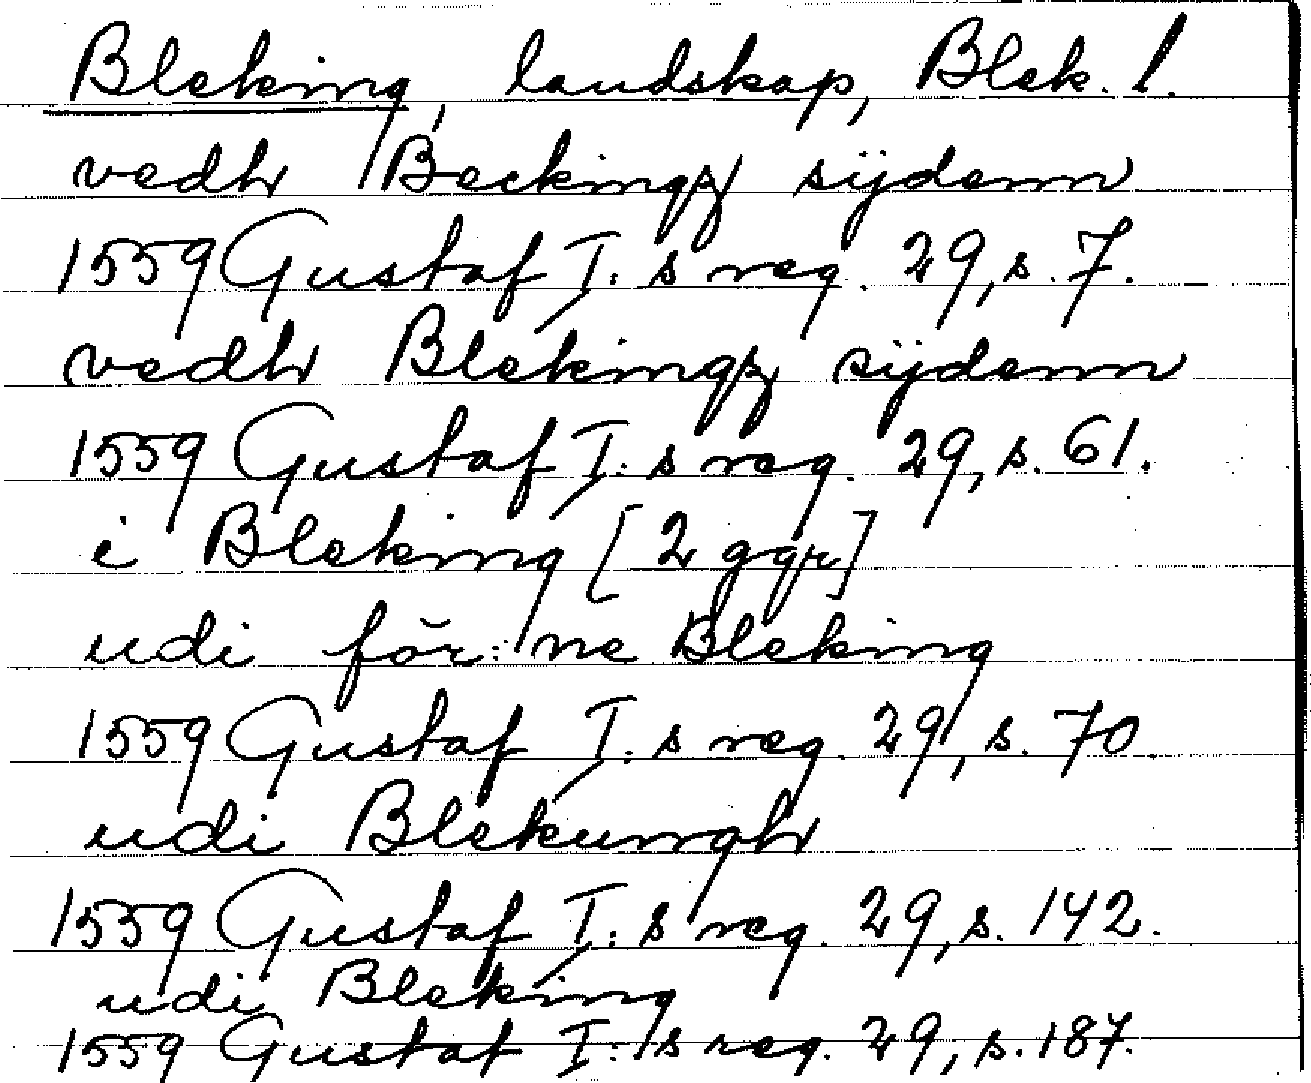 Bleking, landskap, Blek. l.
vedh Beckingz sijdenn
1559 Gustaf I:s reg. 29, s. 7.
vedh Blekingz sijdenn
1559 Gustaf I:s reg. 29, s. 61.
i Bleking [2 ggr]
udi för:ne Bleking
1559 Gustaf I:s reg. 29, s. 70.
udi Blekungh
1559 Gustaf I:s reg. 29, s. 142.
udi Bleking
1559 Gustaf I:s reg. 29, s. 187.